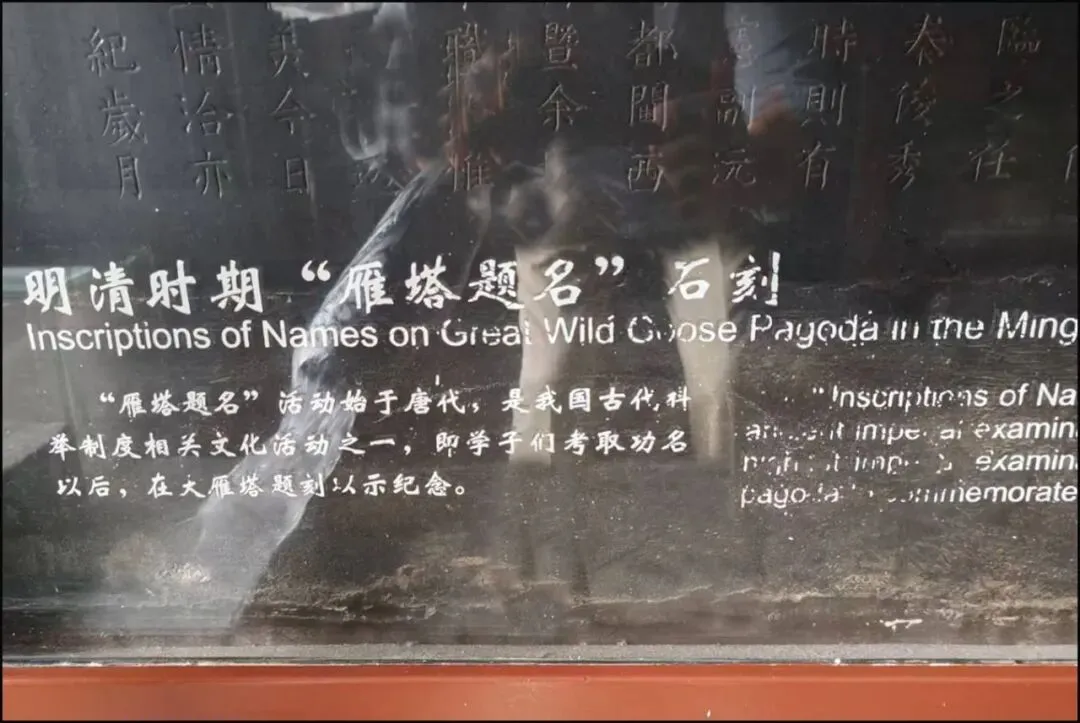 臨之任
俊秀
時則有
副沅
都閫西
暨余
職惟
今日
情洽亦
紀歲月
明清时期“雁塔题名”石刻
Inscriptions of Names on Great Wild Goose Pagoda in the Ming
“雁塔题名”活动始于唐代，是我国古代科
举制度相关文化活动之一，即学子们考取功名
以后，在大雁塔题刻以示纪念。
"Inscriptions of Na
ancient imperial examin
highest imperial examin
pagoda to commemorate